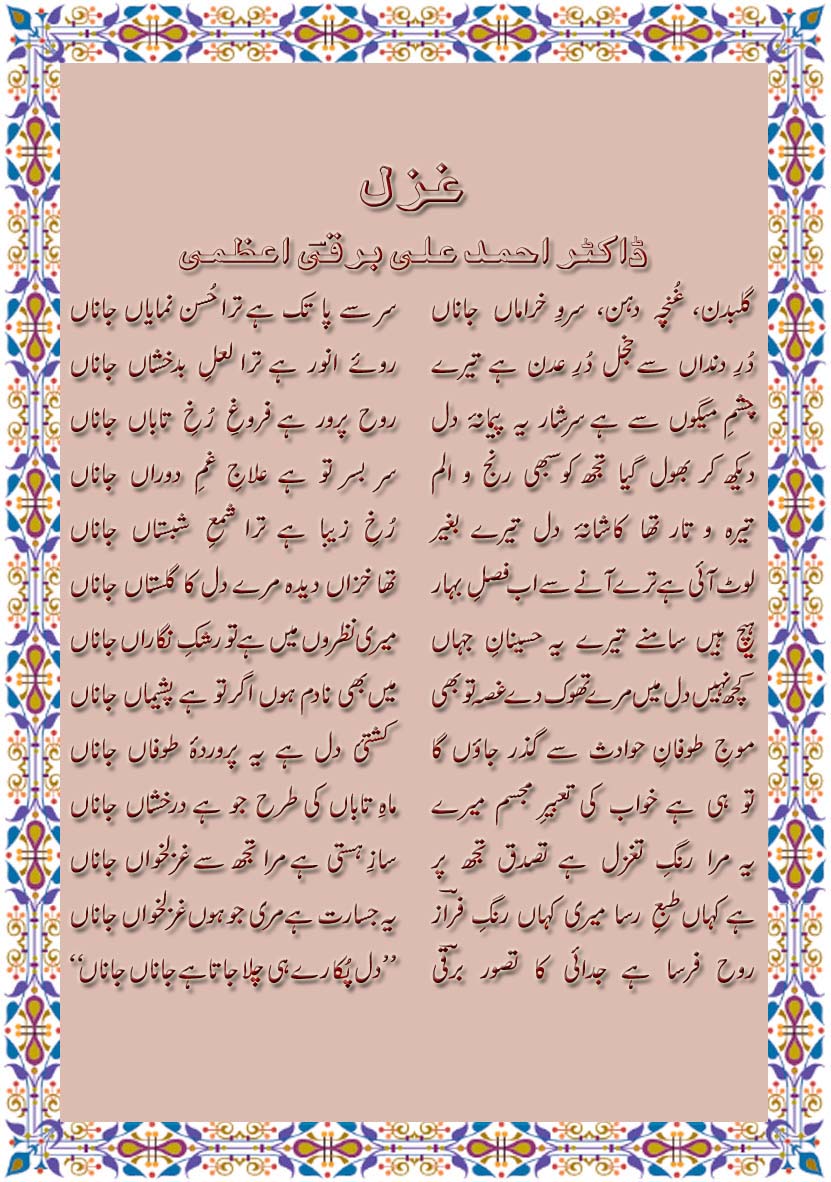 غزل
ڈاکٹر احمد علی برقیؔ اعظمی
گلبدن، غُنچہ دہن، سروِ خراماں جاناں سر سے پا تک ہے ترا حُسن نمایاں جاناں
دُرِ دنداں سے خجل دُرِ عدن ہے تیرے روئے انور ہے ترا لعلِ بدخشاں جاناں
چشمِ میگوں سے ہے سرشار یہ پیمانۂ دل روح پرور ہے فروغِ رُخِ تاباں جاناں
دیکھ کر بھول گیا تجھ کو سبھی رنج و الم سر بسر تو ہے علاجِ غمِ دوراں جاناں
تیرہ و تار تھا کاشانۂ دل تیرے بغیر رُخِ زیبا ہے ترا شمعِ شبستاں جاناں
لوٹ آئی ہے ترے آنے سے اب فصلِ بہار تھا خزاں دیدہ مرے دل کا گلستاں جاناں
ہیچ ہیں سامنے تیرے یہ حسینانِ جہاں میری نظروں میں ہے تو رشکِ نگاراں جاناں
کچھ نہیں دل میں مرے تھوک دے غصہ تو بھی میں بھی نادم ہوں اگر تو ہے پشیماں جاناں
موجِ طوفانِ حوادث سے گذر جاؤں گا کشتیٔ دل ہے یہ پروردۂ طوفاں جاناں
تو ہی ہے خواب کی تعبیرِ مجسم میرے ماہِ تاباں کی طرح جو ہے درخشاں جاناں
یہ مرا رنگِ تغزل ہے تصدق تجھ پر سازِ ہستی ہے مرا تجھ سے غزلخواں جاناں
ہے کہاں طبعِ رسا میری کہاں رنگِ فرازؔ یہ جسارت ہے مری جو ہوں غزلخواں جاناں
روح فرسا ہے جدائی کا تصور برقیؔ ’’دل پُکارے ہی چلا جاتا ہے جاناں جاناں‘‘